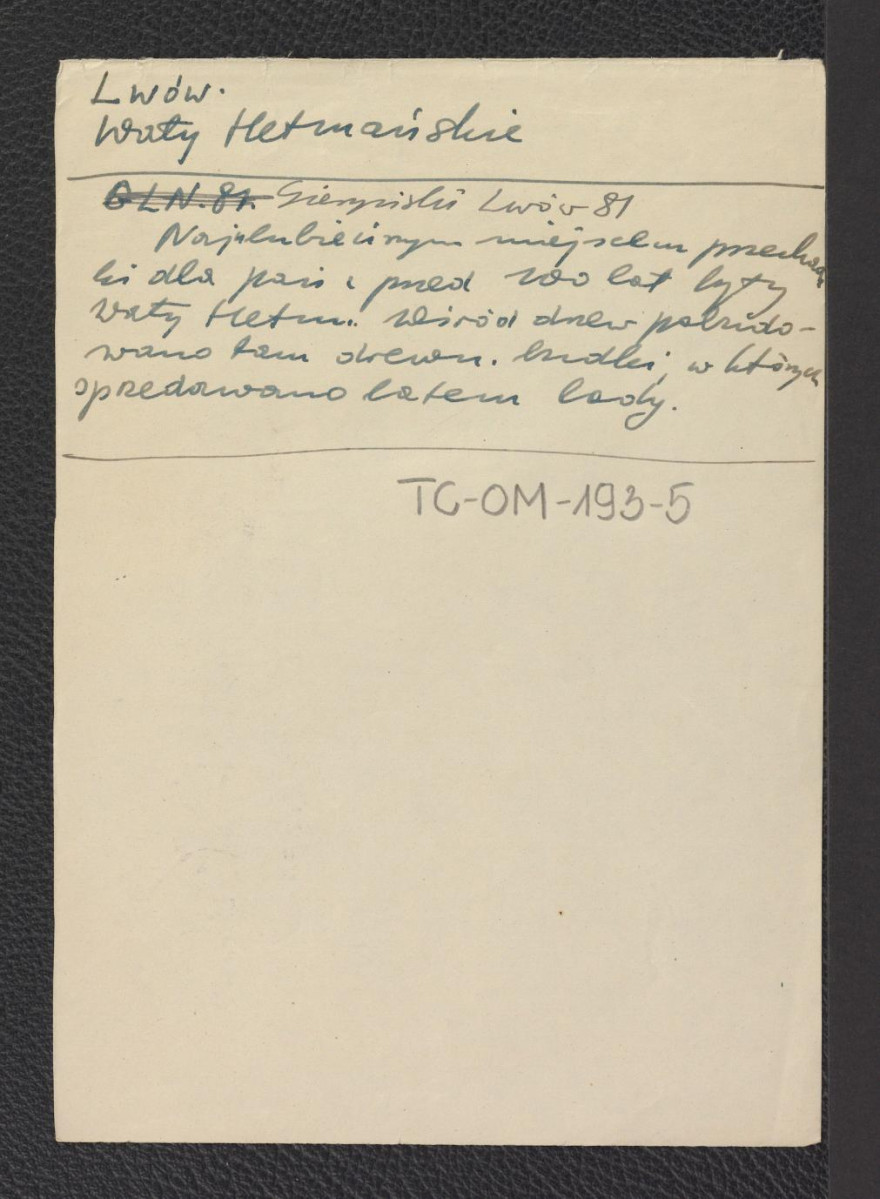 Lwów.
Wały Hetmańskie
G L N. 81. Gieryński Lwów 81
Najulubieńszym miejscem przechadz
ki dla pań i przed 100 lat były
Wały Hetm.. Wśród drzew pobudo-
wano tam drewn. budki, w których
sprzedawano latem lody.
TC-OM-193-5